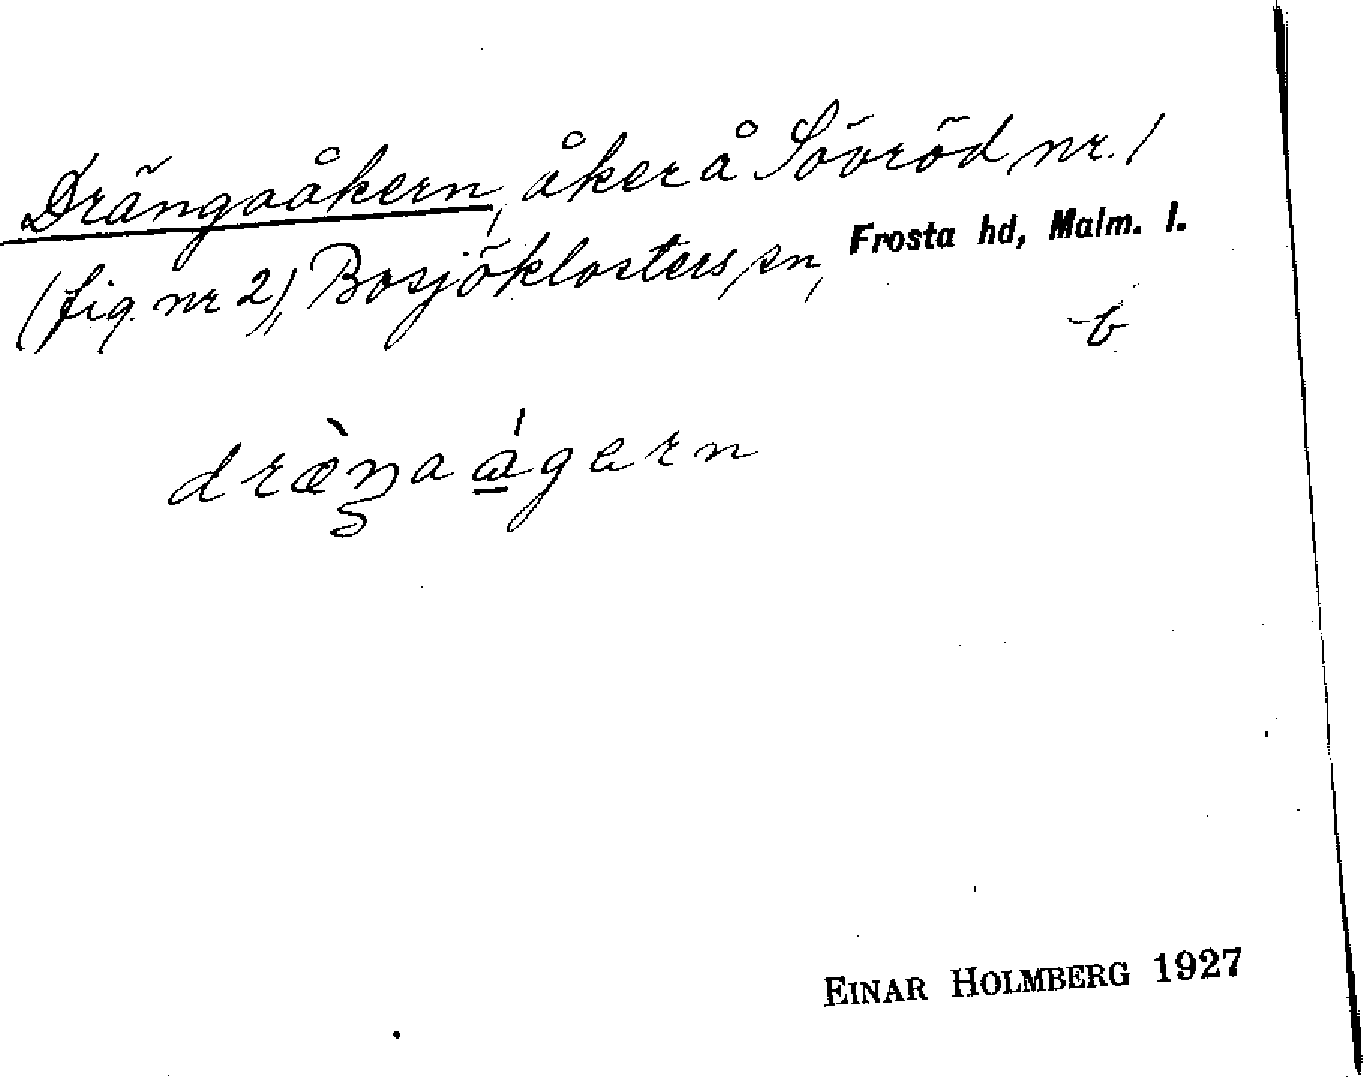 Drängaåkern, åker å Sövröd nr. 1
(fig. nr 2), Bosjöklosters sn, Frosta hd, Malm. l.
b
dræ̀ŋa ágern
EINAR HOLMBERG 1927